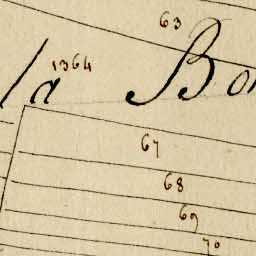 63
1364
la Bon
67
68
69
70